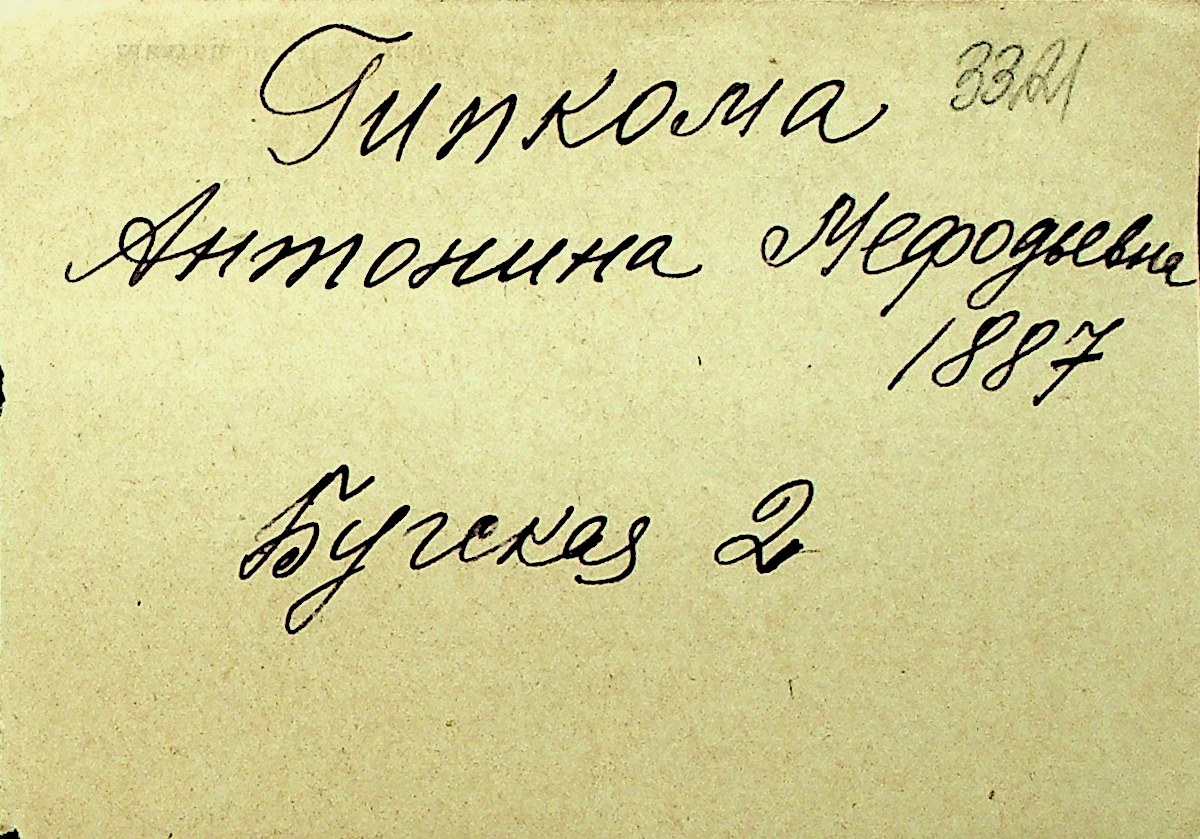 Гипкома 3321
Антонина Мефодьевна
1887
Бугская 2